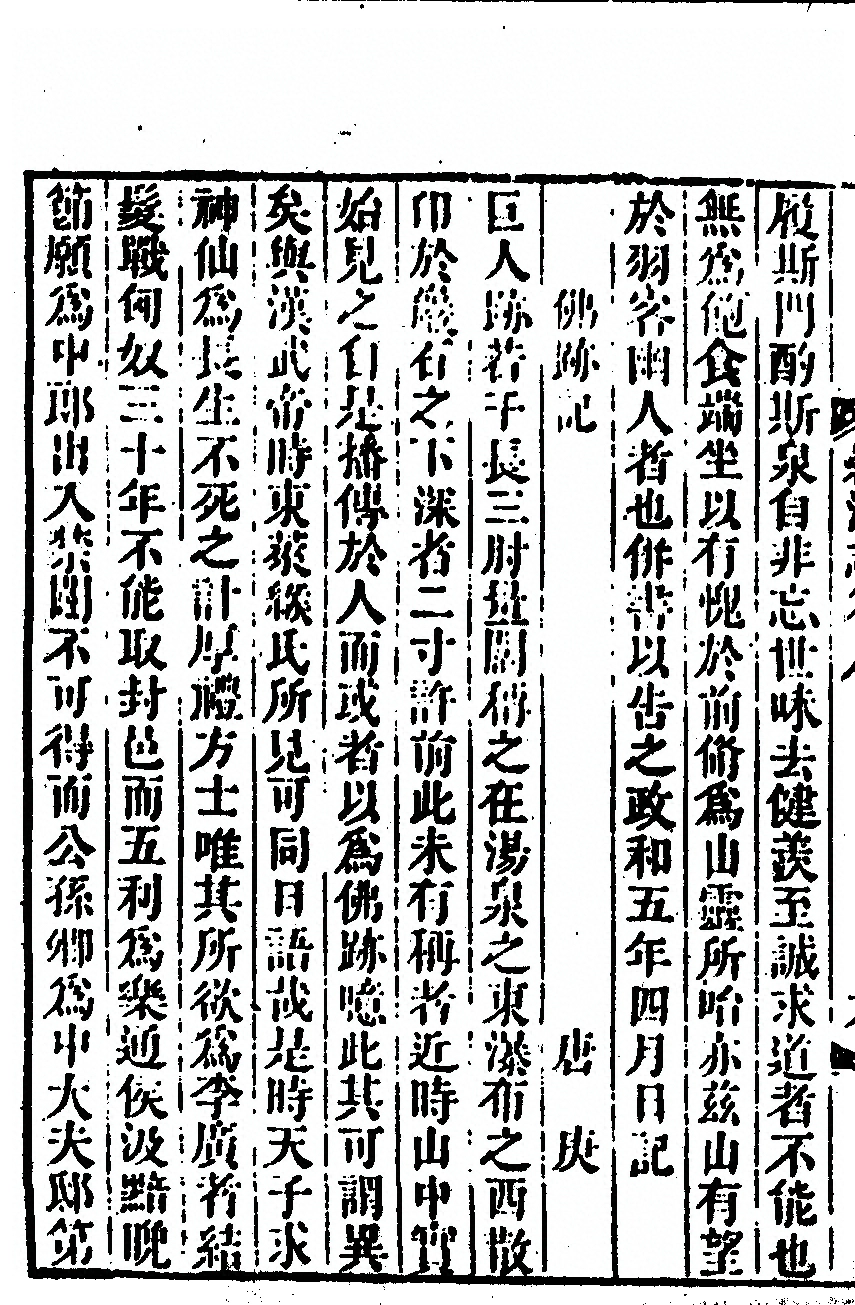 履斯門酌斯泉自非忘世味去健羨至誠求道者不能也
無為飽食端坐以有愧於前脩為山靈所咍亦茲山有望
於羽客幽人者也併書以告之政和五年四月日記
佛跡記 唐庚
巨人跡若干長三肘量闊稱之在湯泉之東瀑布之西散
印於巖石之下深者二寸許前此未有稱者近時山中寶
始見之自是播傳於人而或者以為佛跡噫此其可謂異
矣與漢武帝時東萊緱氏所見可同日語哉是時天子求
神仙為長生不死之計厚禮方士唯其所欲為李廣者結
髮戰匈奴三十年不能取封邑而五利為樂通侯汲黯晚
節願為中郎出入禁闥不可得而公孫卿為中大夫邸第